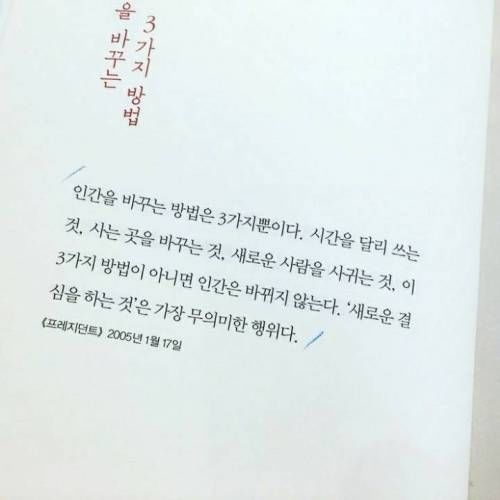 3가지 방법
을 바꾸는
인간을 바꾸는 방법은 3가지뿐이다. 시간을 달리 쓰는
것, 사는 곳을 바꾸는 것, 새로운 사람을 사귀는 것, 이
3가지 방법이 아니면 인간은 바뀌지 않는다. ‘새로운 결
심을 하는 것’은 가장 무의미한 행위다.
《프레지던트》 2005년 1월 17일